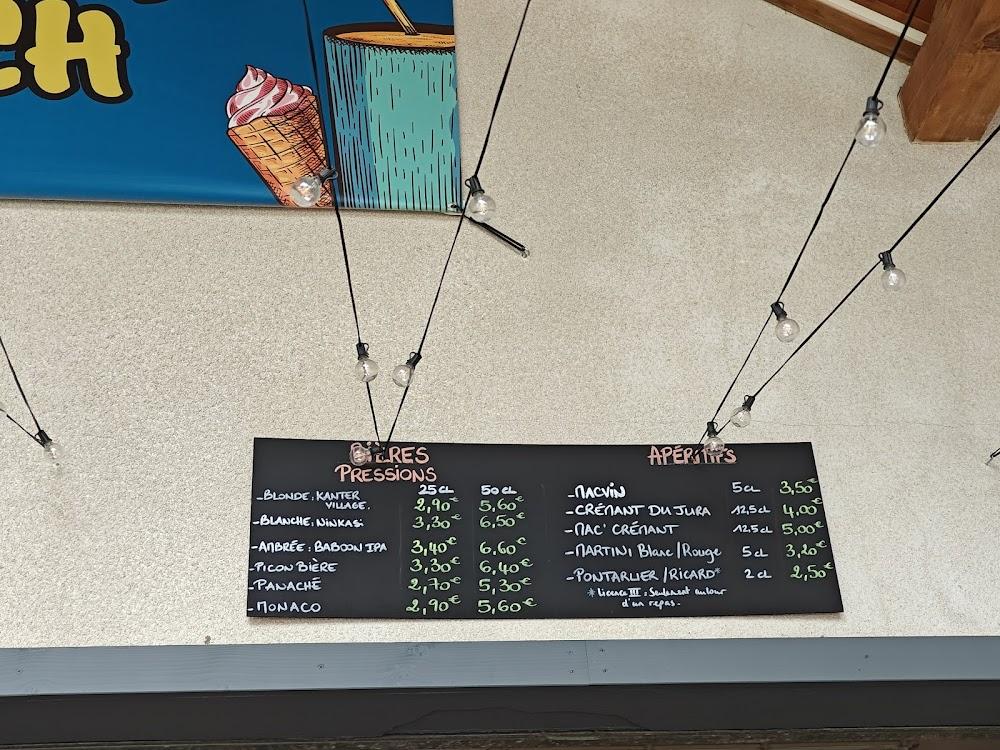 CH
BIÈRES
PRESSIONS
25 CL 50 CL
-BLONDE: KANTER VILLAGE. 2,90€ 5,60€
-BLANCHE: NINKASI 3,30€ 6,50€
-AMBRÉE: BABOON IPA 3,40€ 6,60€
-PICON BIÈRE 3,30€ 6,40€
-PANACHÉ 2,70€ 5,30€
-MONACO 2,90€ 5,60€
APÉRITIFS
-MACVIN 5 CL 3,50€
-CRÉMANT DU JURA 12,5 CL 4,00€
-MAC' CRÉMANT 12,5 CL 5,00€
-MARTINI Blanc/Rouge 5 CL 3,20€
-PONTARLIER/RICARD* 2 CL 2,50€
*Licence III: Seulement autour
d'un repas.